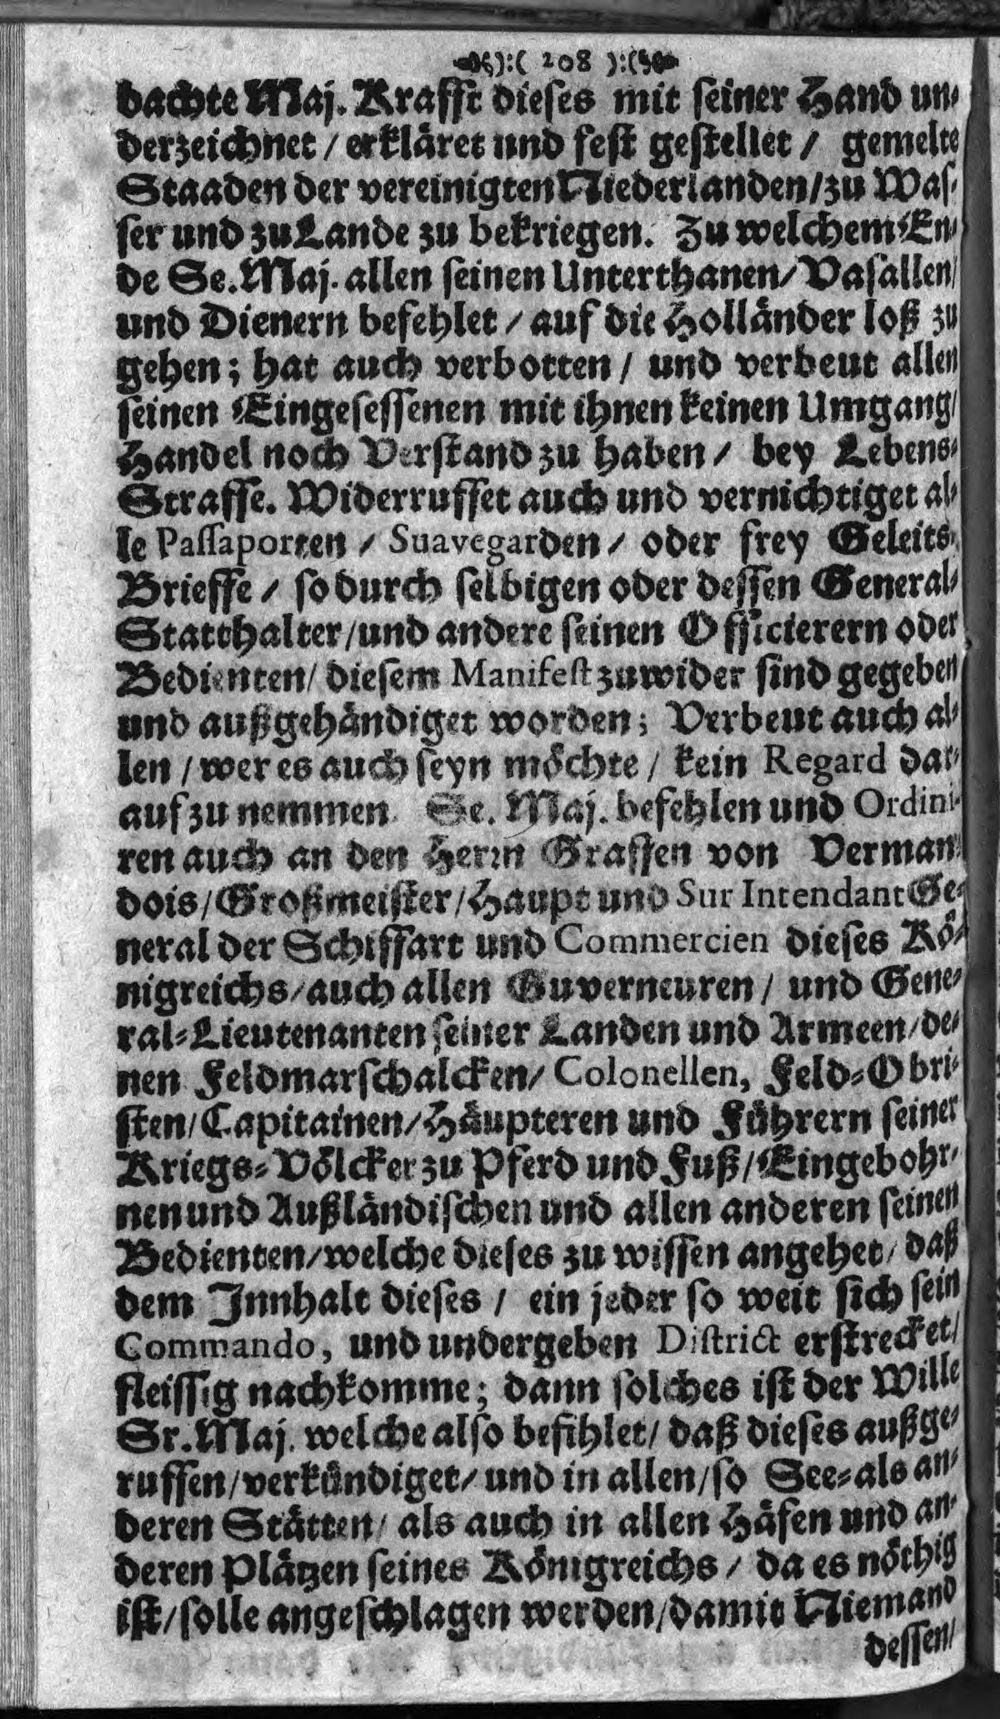 ):( 208 ):(
dachte Maj. Krafft dieses mit seiner Hand un-
derzeichnet / erkläret und fest gestellet / gemelte
Staaden der vereinigten Niederlanden / zu Was-
ser und zu Lande zu bekriegen. Zu welchem En-
de Se. Maj. allen seinen Unterthanen / Vasallen /
und Dienern befehlet / auf die Holländer loß zu
gehen; hat auch verbotten / und verbeut allen
seinen Eingesessenen mit ihnen keinen Umgang /
Handel noch Verstand zu haben / bey Lebens-
Straffe. Widerruffet auch und vernichtiget al-
le Passaporten / Suavegarden / oder frey Geleits-
Brieffe / so durch selbigen oder dessen General-
Statthalter / und andere seinen Officierern oder
Bedienten / diesem Manifest zuwider sind gegeben
und außgehändiget worden; Verbeut auch al-
len / wer es auch seyn möchte / kein Regard dar-
auf zu nemmen. Se. Maj. befehlen und Ordini-
ren auch an den Herrn Graffen von Verman-
dois / Großmeister / Haupt und Sur Intendant Ge-
neral der Schiffart und Commercien dieses Kö-
nigreichs / auch allen Guverneuren / und Gene-
ral-Lieutenanten seiner Landen und Armeen / de-
nen Feldmarschalcken / Colonellen, Feld-Obri-
sten / Capitainen / Häupteren und Führern seiner
Kriegs-Völcker zu Pferd und Fuß / Eingebohr-
nen und Außländischen und allen anderen seinen
Bedienten / welche dieses zu wissen angehet / daß
dem Innhalt dieses / ein jeder so weit sich sein
Commando, und undergeben District erstrecket /
fleissig nachkomme; dann solches ist der Wille
Sr. Maj. welche also befihlet / daß dieses außge-
ruffen / verkündiget / und in allen / so See-als an-
deren Stätten / als auch in allen Häfen und an-
deren Plätzen seines Königreichs / da es nöthig
ist / solle angeschlagen werden / damit Niemand
dessen /